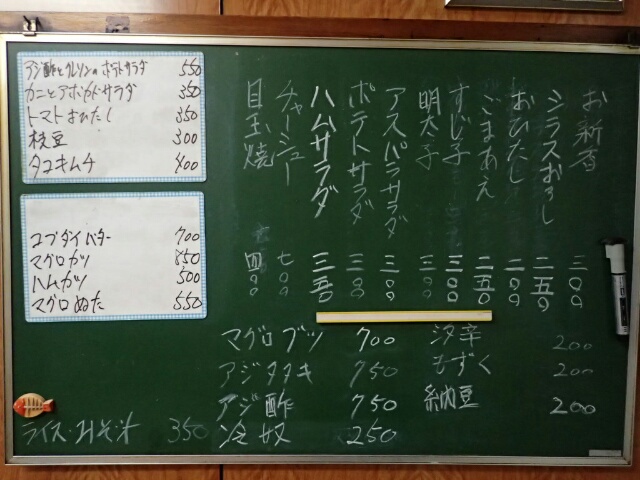 アジ酢とクレソンのポテトサラダ 550
カニとアボカドサラダ 350
トマトおひたし 350
枝豆 300
タコキムチ 400
コブダイバター 700
マグロカツ 850
ハムカツ 500
マグロぬた 550
お新香 三〇〇
シラスおろし 二五〇
おひたし 二〇〇
ごまあえ 二五〇
すじ子 三〇〇
明太子 三〇〇
アスパラサラダ 三〇〇
ポテトサラダ 三〇〇
ハムサラダ 三五〇
チャーシュー 七〇〇
目玉焼 四〇〇
マグロブツ 700
アジタタキ 750
アジ酢 750
冷奴 250
汐辛 200
もずく 200
納豆 200
ライス・みそ汁 350